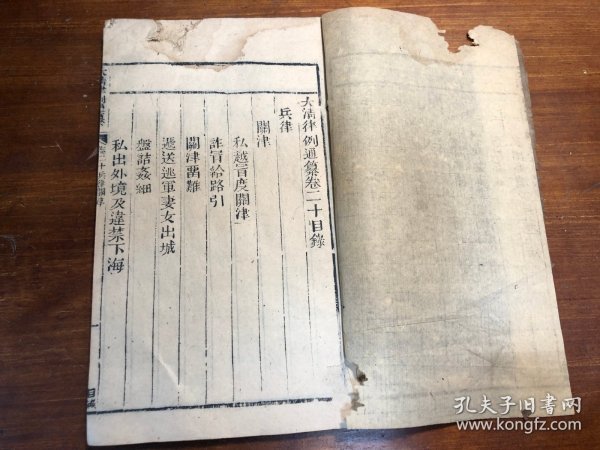 大淸律例通纂卷二十目錄
兵律
關津
私越冐度關津
詐冐給路引
關津畱難
遞送逃軍妻女出城
盤詰姦細
私出外境及違禁下海
孔夫子旧書网
www.kongfz.com